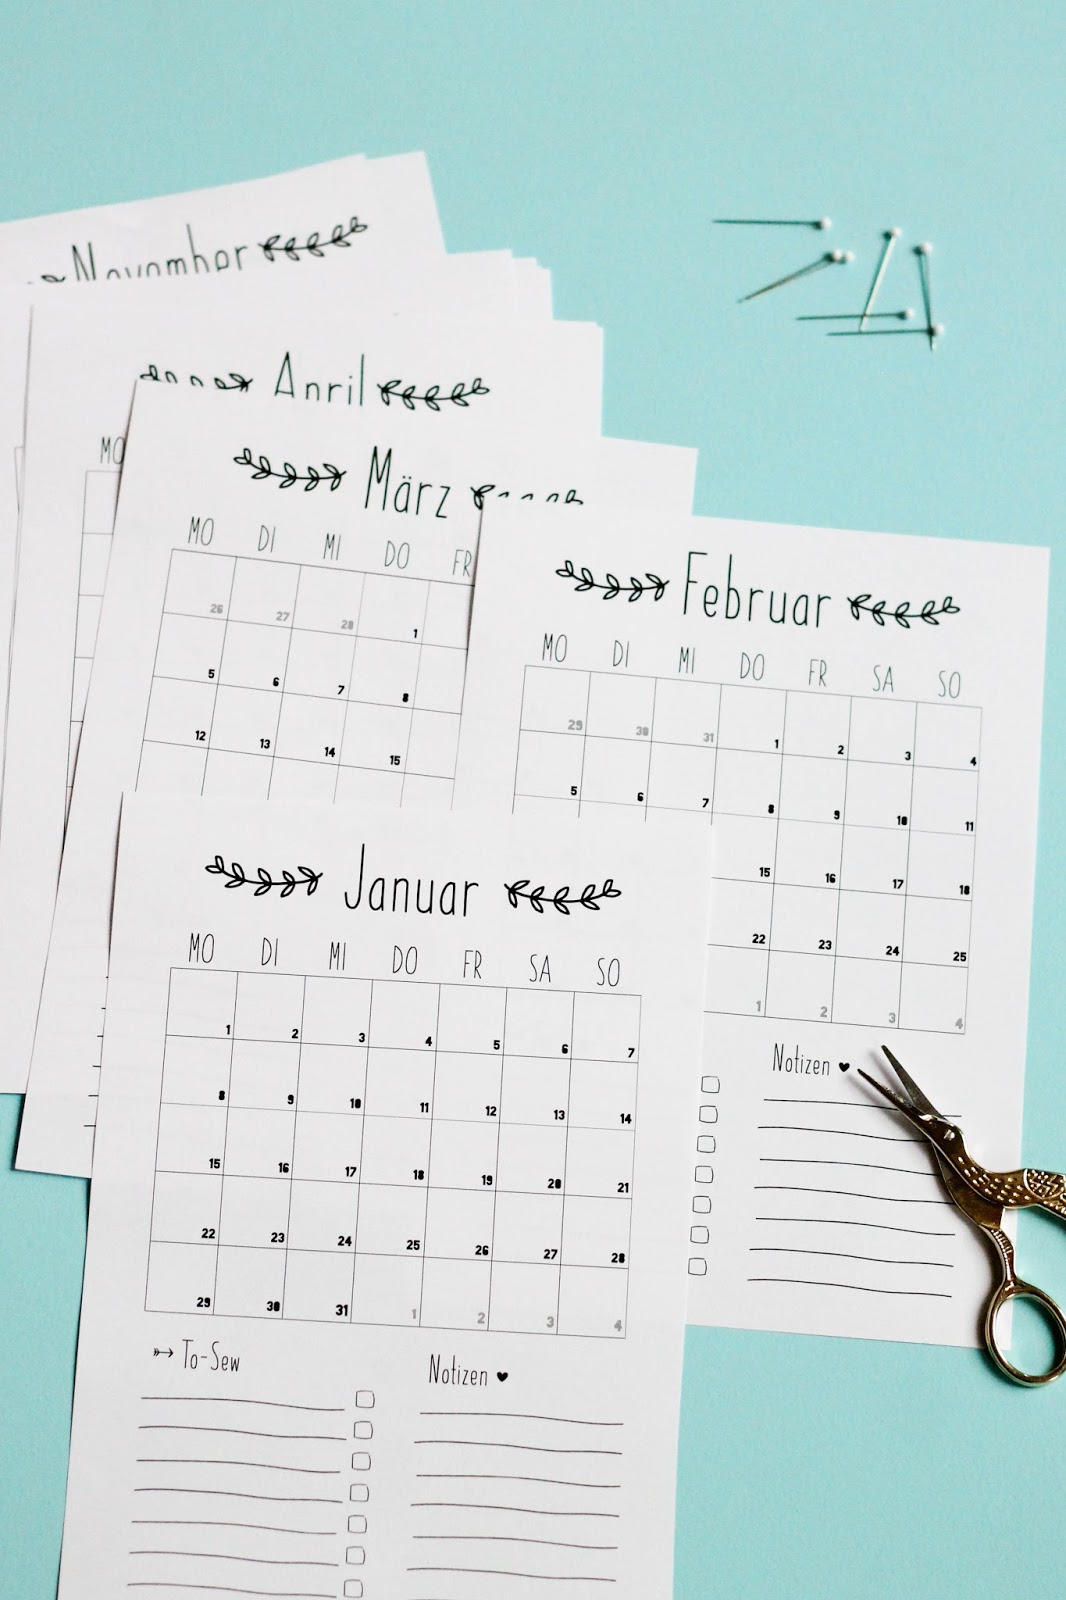 November
April
MO
März
MO DI MI DO FR
26 27 28 1
5 6 7 8
12 13 14 15
Februar
MO DI MI DO FR SA SO
29 30 31 1 2 3 4
5 6 7 8 9 10 11
15 16 17 18
22 23 24 25
1 2 3 4
Notizen ♥
Januar
MO DI MI DO FR SA SO
1 2 3 4 5 6 7
8 9 10 11 12 13 14
15 16 17 18 19 20 21
22 23 24 25 26 27 28
29 30 31 1 2 3 4
To-Sew
Notizen ♥